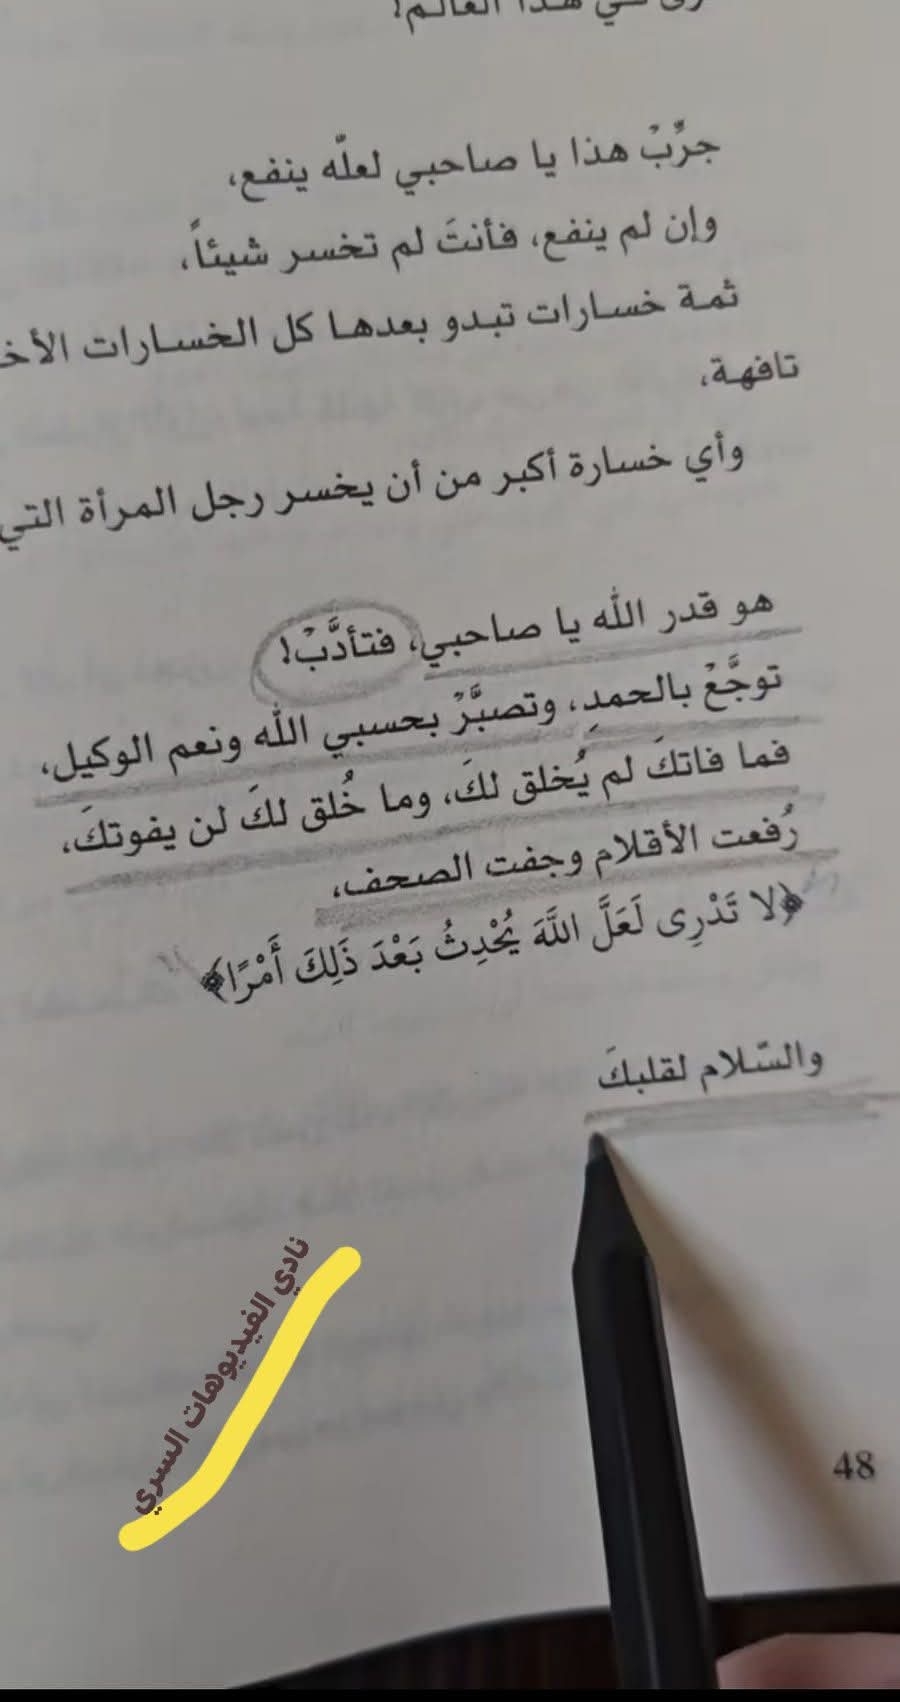 في هذا العالم!
جرِّبْ هذا يا صاحبي لعلّه ينفع،
وإن لم ينفع، فأنتَ لم تخسر شيئاً،
ثمة خسارات تبدو بعدها كل الخسارات
تافهة،
وأي خسارة أكبر من أن يخسر رجل المرأة التي
هو قدر الله يا صاحبي، فتأدَّبْ!
توجَّعْ بالحمدِ، وتصبَّرْ بحسبي الله ونعم الوكيل،
فما فاتكَ لم يُخلق لكَ، وما خُلق لكَ لن يفوتكَ،
رُفعت الأقلام وجفت الصحف،
﴿لا تَدْرِى لَعَلَّ اللَّهَ يُحْدِثُ بَعْدَ ذَلِكَ أَمْرًا﴾
والسّلام لقلبكَ
نادي الفيديوهات السري
48